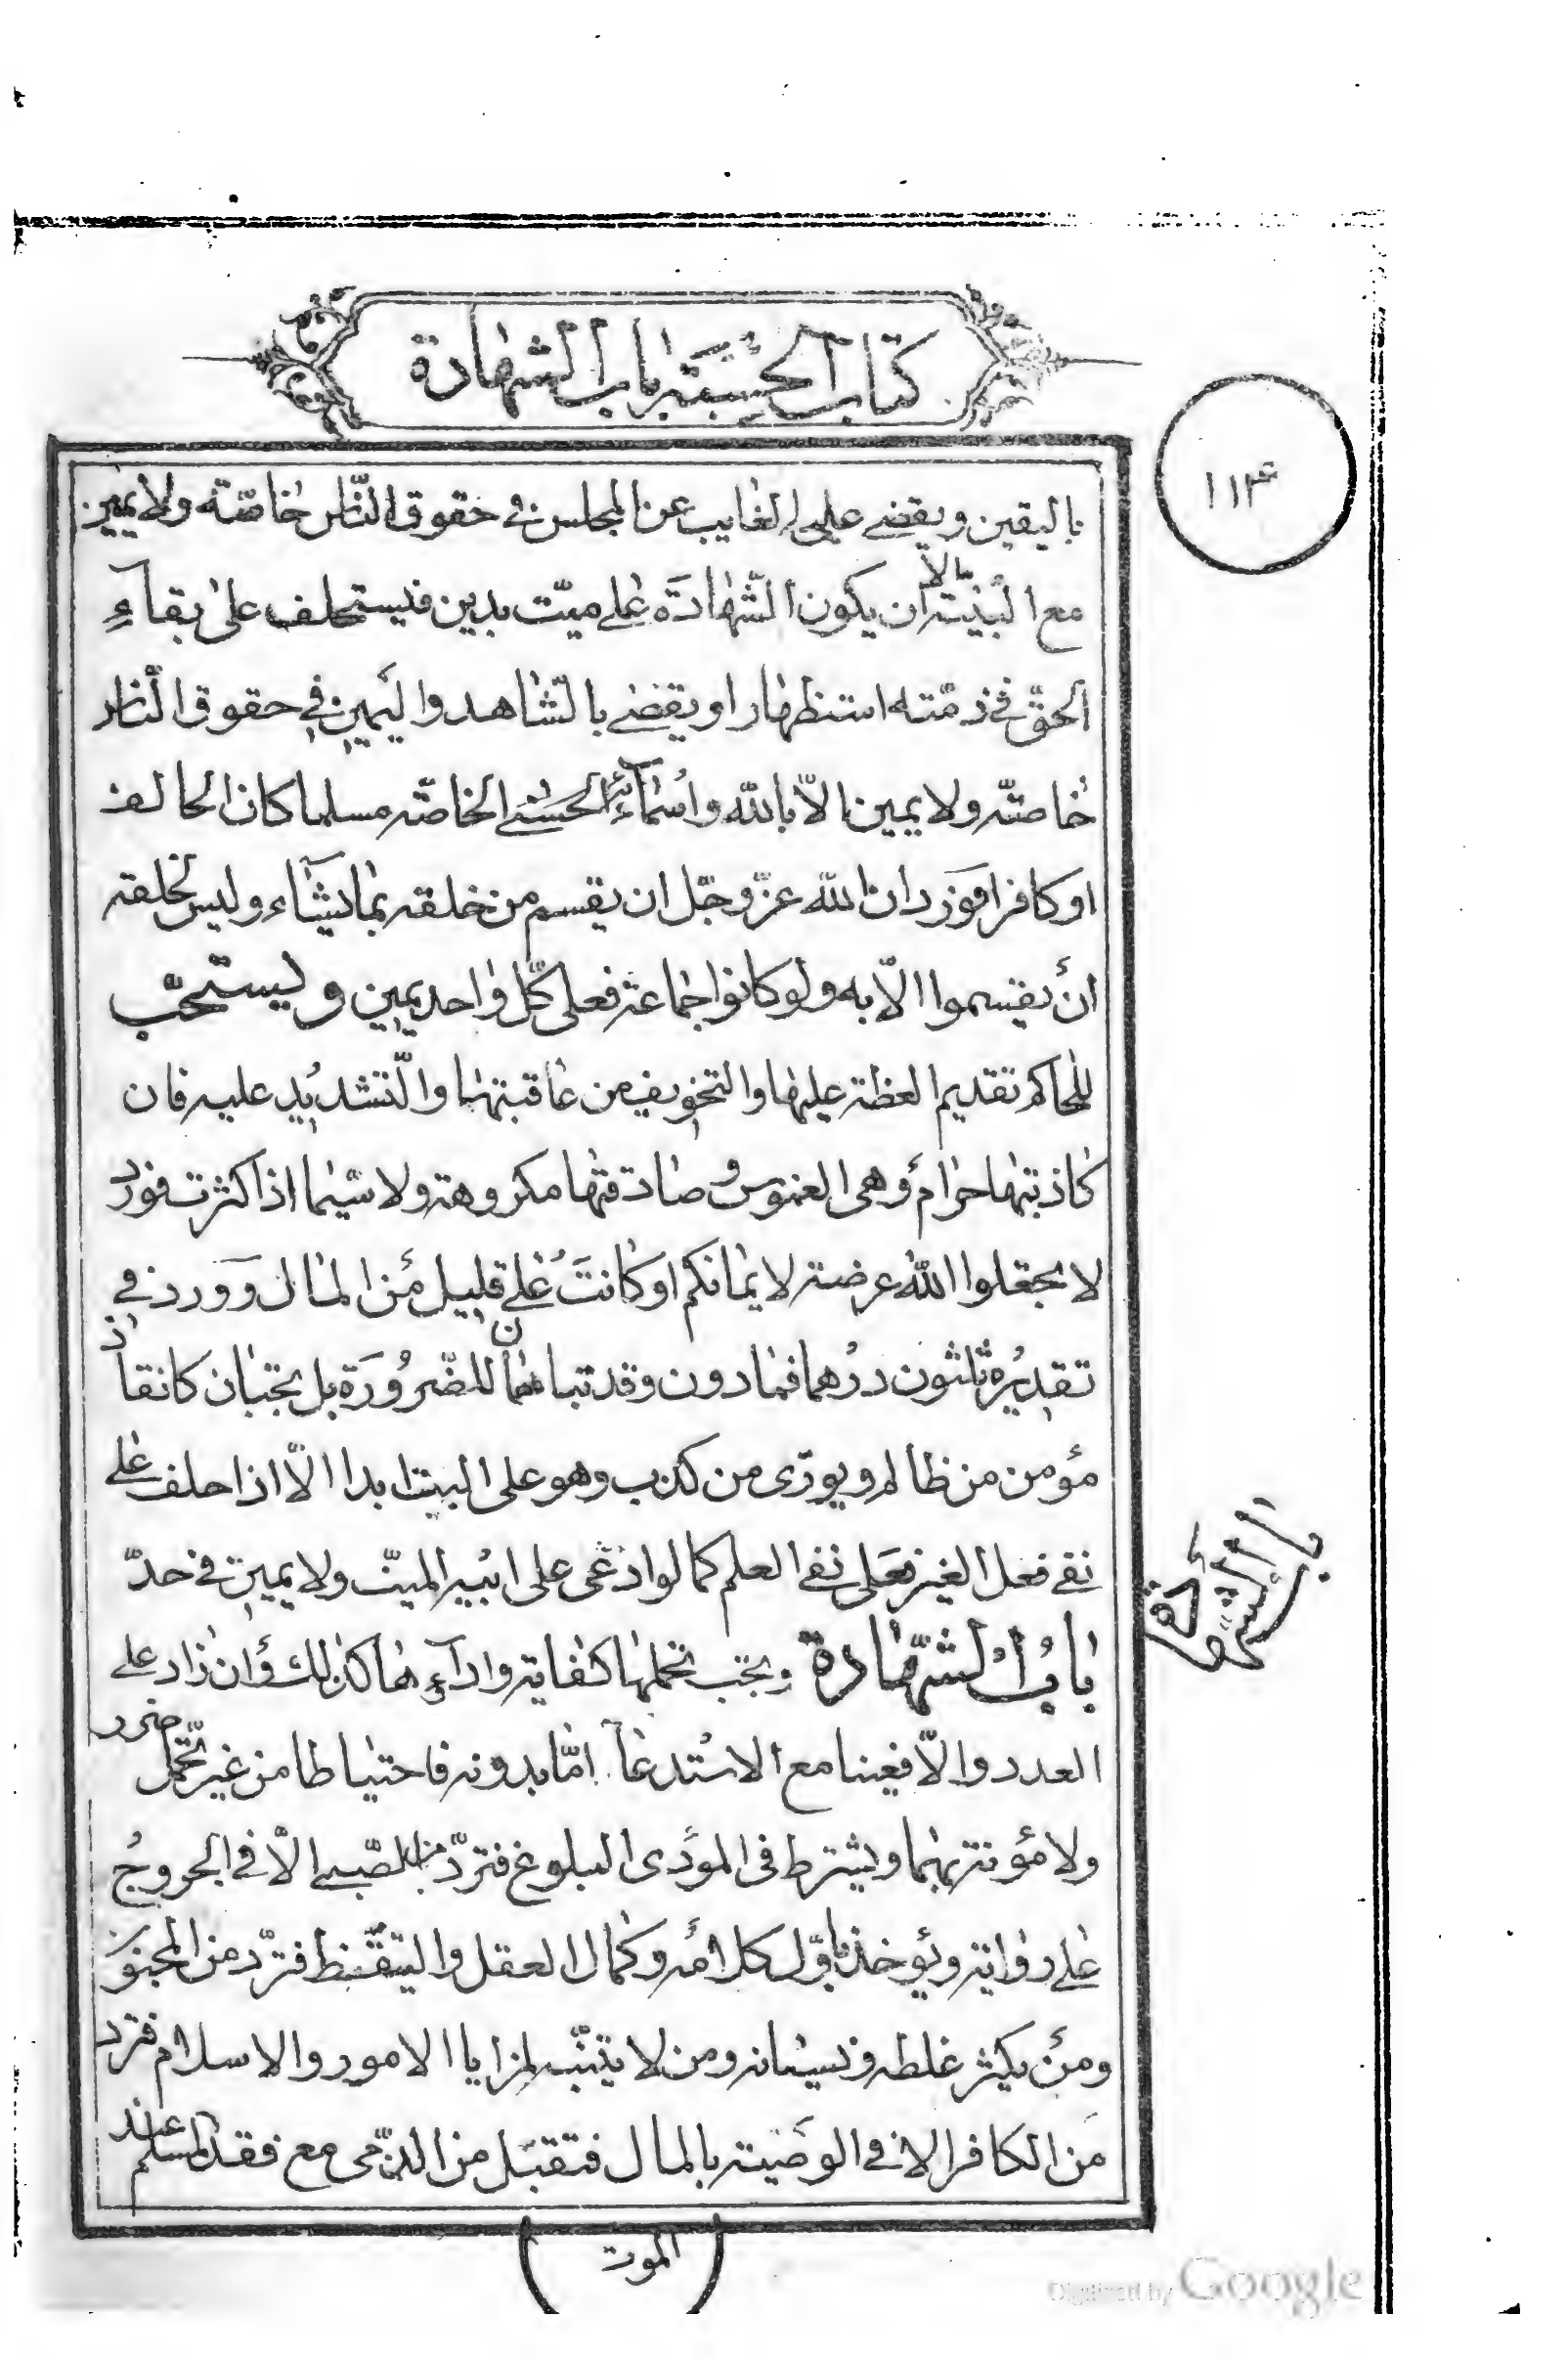 كتاب الحسبة باب الشهادة
۱۱۴
باليقين ويقضى على الغايب عن المجلس فى حقوق النّاس خاصّة ولا يمين
مع البيّنة الّا ان يكون الشّهادة على ميّت بدين فيستحلف على بقآء
الحقّ فى ذمّته استظهارا ويقضى بالشّاهد واليمين في حقوق النّاس
خاصّة ولا يمين الّا بالله واسمآئه الحسنى الخاصّه مسلما كان الحالف
او كافرا فورد ان لله عزّ وجلّ ان يقسم من خلقه بما يشآء وليس لخلقه
أن يقسموا الّا به ولو كانوا جماعة فعلى كلّ واحد يمين ويستحبّ
للحاكم تقديم العظة عليها والتخويف من عاقبتها والتّشديد عليه فان
كاذبتها حرام وهى الغموس وصادقتها مكروهة ولا سيّما اذا كثرت فورد
لا تجعلوا الله عرضة لايمانكم او كانت على قليل من المال وورد في
تقديره ثلثون درهما فما دون وقد تباحان للضّرورة بل تجبان كانقاذ
مؤمن من ظالم ويورّى من كذب وهو على البت ابدا الّا اذا حلف على
نفى فعل الغير فعلى نفى العلم كما لو ادعى على ابيه الميّت ولا يمين في حدّ
باب الشّهادة
باب الشّهادة ويجب تحملها كفاية وادآءها كذلك وان زاد على
العدد والّا فعينا مع الاستدعآ امّا بدونه فاحتياطا من غير تحمّل ضرر
ولا مؤنة بهما ويشترط فى المؤدى البلوغ فتردّ من الصّبى الّا فى الجروح
على رواية ويؤخذ باوّل كلامه وكمال العقل والتيقّظ فتردّ من المجنون
ومن يكثر غلطه ونسيانه ومن لا يتنبّه لمزايا الامور والاسلام فترد
من الكافر الا فى الوصية بالمال فتقبل من الذّمى مع فقد المسلم عند
الموت
Digitized by Google